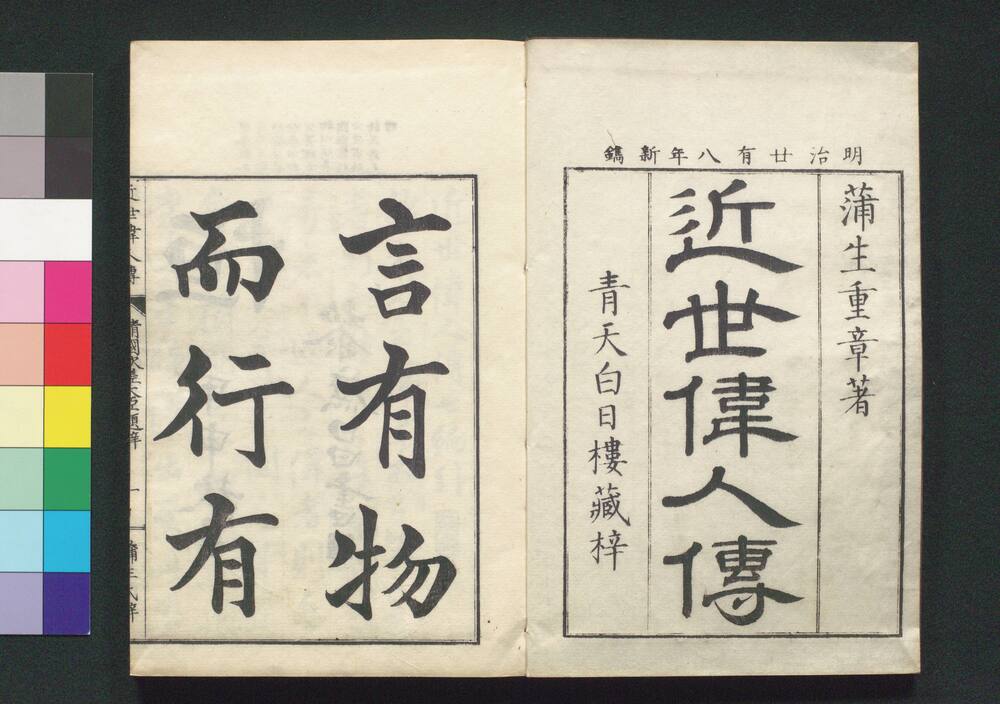 明治廿有八年新鐫
蒲生重章著
近世偉人傳
青天白日樓藏梓
言有物
而行有
近世偉人傳
蒲生氏梓